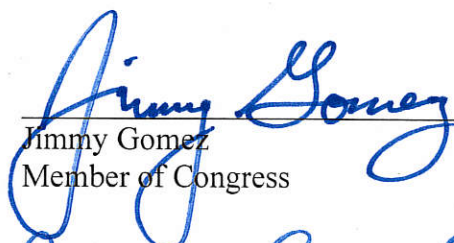 Jimmy Gomez
Jimmy Gomez
Member of Congress